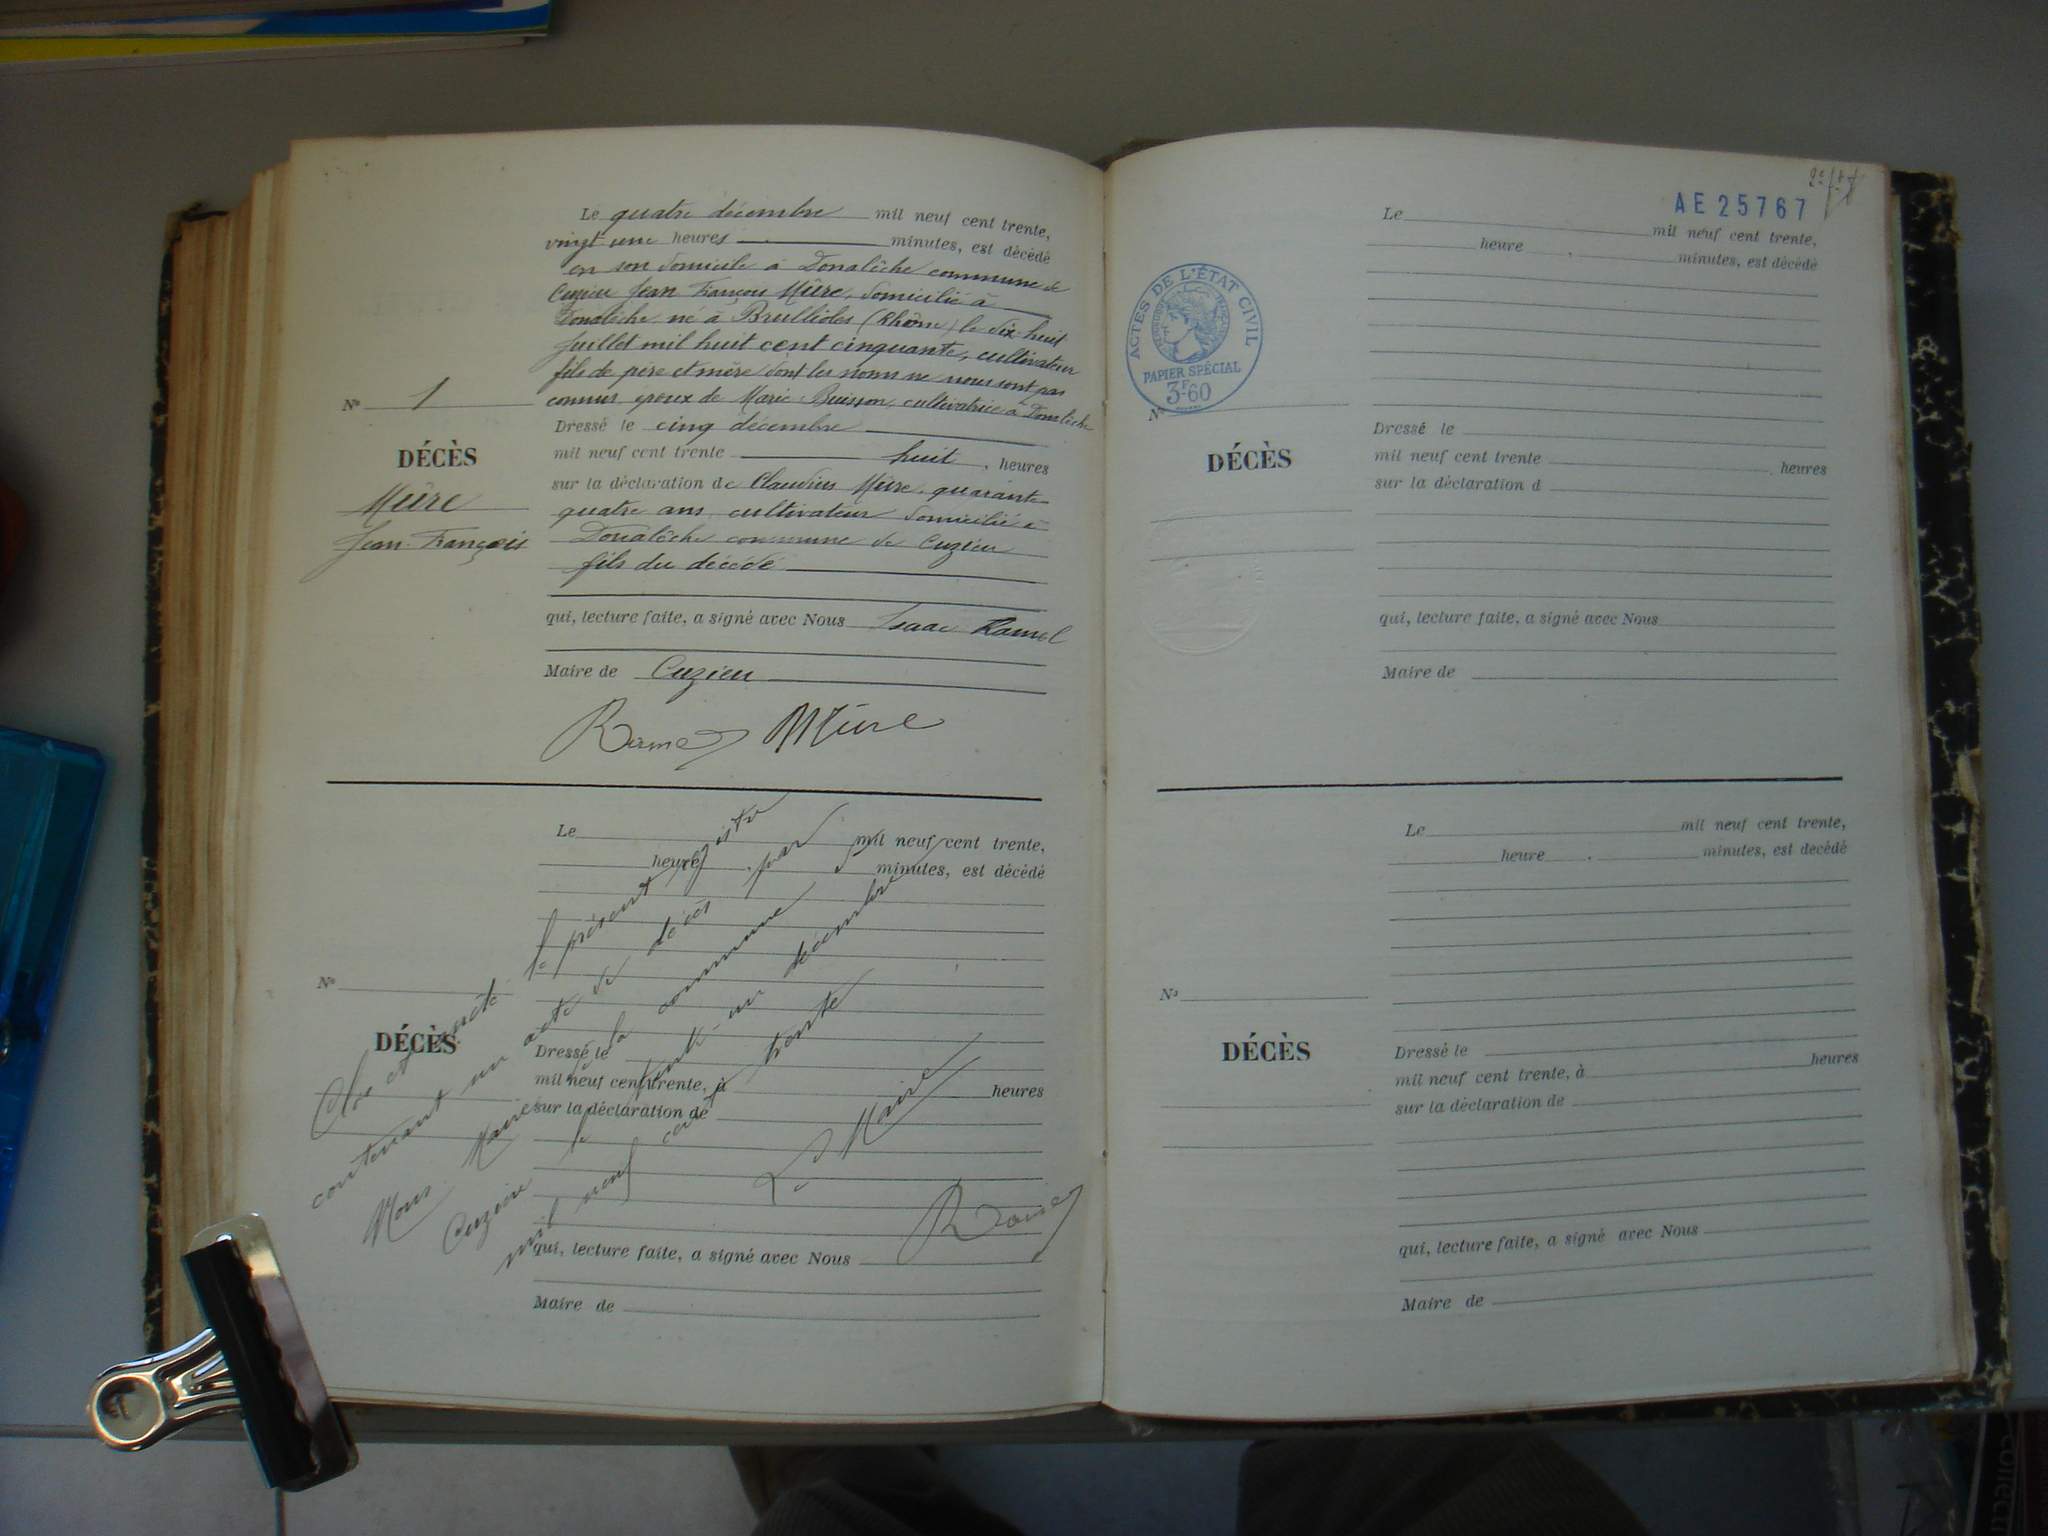 Le quatre décembre mil neuf cent trente,
vingt une heures minutes, est décédé
en son domicile à Donalèche commune de
Cuzieu Jean François Mûre, domicilié à
Donalèche né à Brullioles (Rhône) le dix-huit
juillet mil huit cent cinquante, cultivateur
fils de père et mère dont les noms ne nous sont pas
connus, époux de Marie Buisson, cultivatrice à Donalèche
Nº 1
DÉCÈS
Mûre
Jean-François
Dressé le cinq décembre
mil neuf cent trente huit, heures
sur la déclaration de Claudius Mûre, quarante-
quatre ans, cultivateur domicilié à
Donalèche commune de Cuzieu
fils du décédé
qui, lecture faite, a signé avec Nous Isaac Ramel
Maire de Cuzieu
Ramel Mûre
Le mil neuf cent trente,
heure minutes, est décédé
Nº
DÉCÈS
Dressé le
mil neuf cent trente, à heures
sur la déclaration de
qui, lecture faite, a signé avec Nous
Maire de
Clos et arrêté le présent registre
contenant un acte de décès par
Nous Maire de la commune de
Cuzieu le trente-un décembre
mil neuf cent trente
Le Maire
Ramel
AE 25767
Le mil neuf cent trente,
heure minutes, est décédé
ACTES DE L'ÉTAT CIVIL
PAPIER SPÉCIAL
3F60
Nº
DÉCÈS
Dressé le
mil neuf cent trente heures
sur la déclaration d
qui, lecture faite, a signé avec Nous
Maire de
Le mil neuf cent trente,
heure minutes, est decédé
Nº
DÉCÈS
Dressé le
mil neuf cent trente, à heures
sur la déclaration de
qui, lecture faite, a signé avec Nous
Maire de